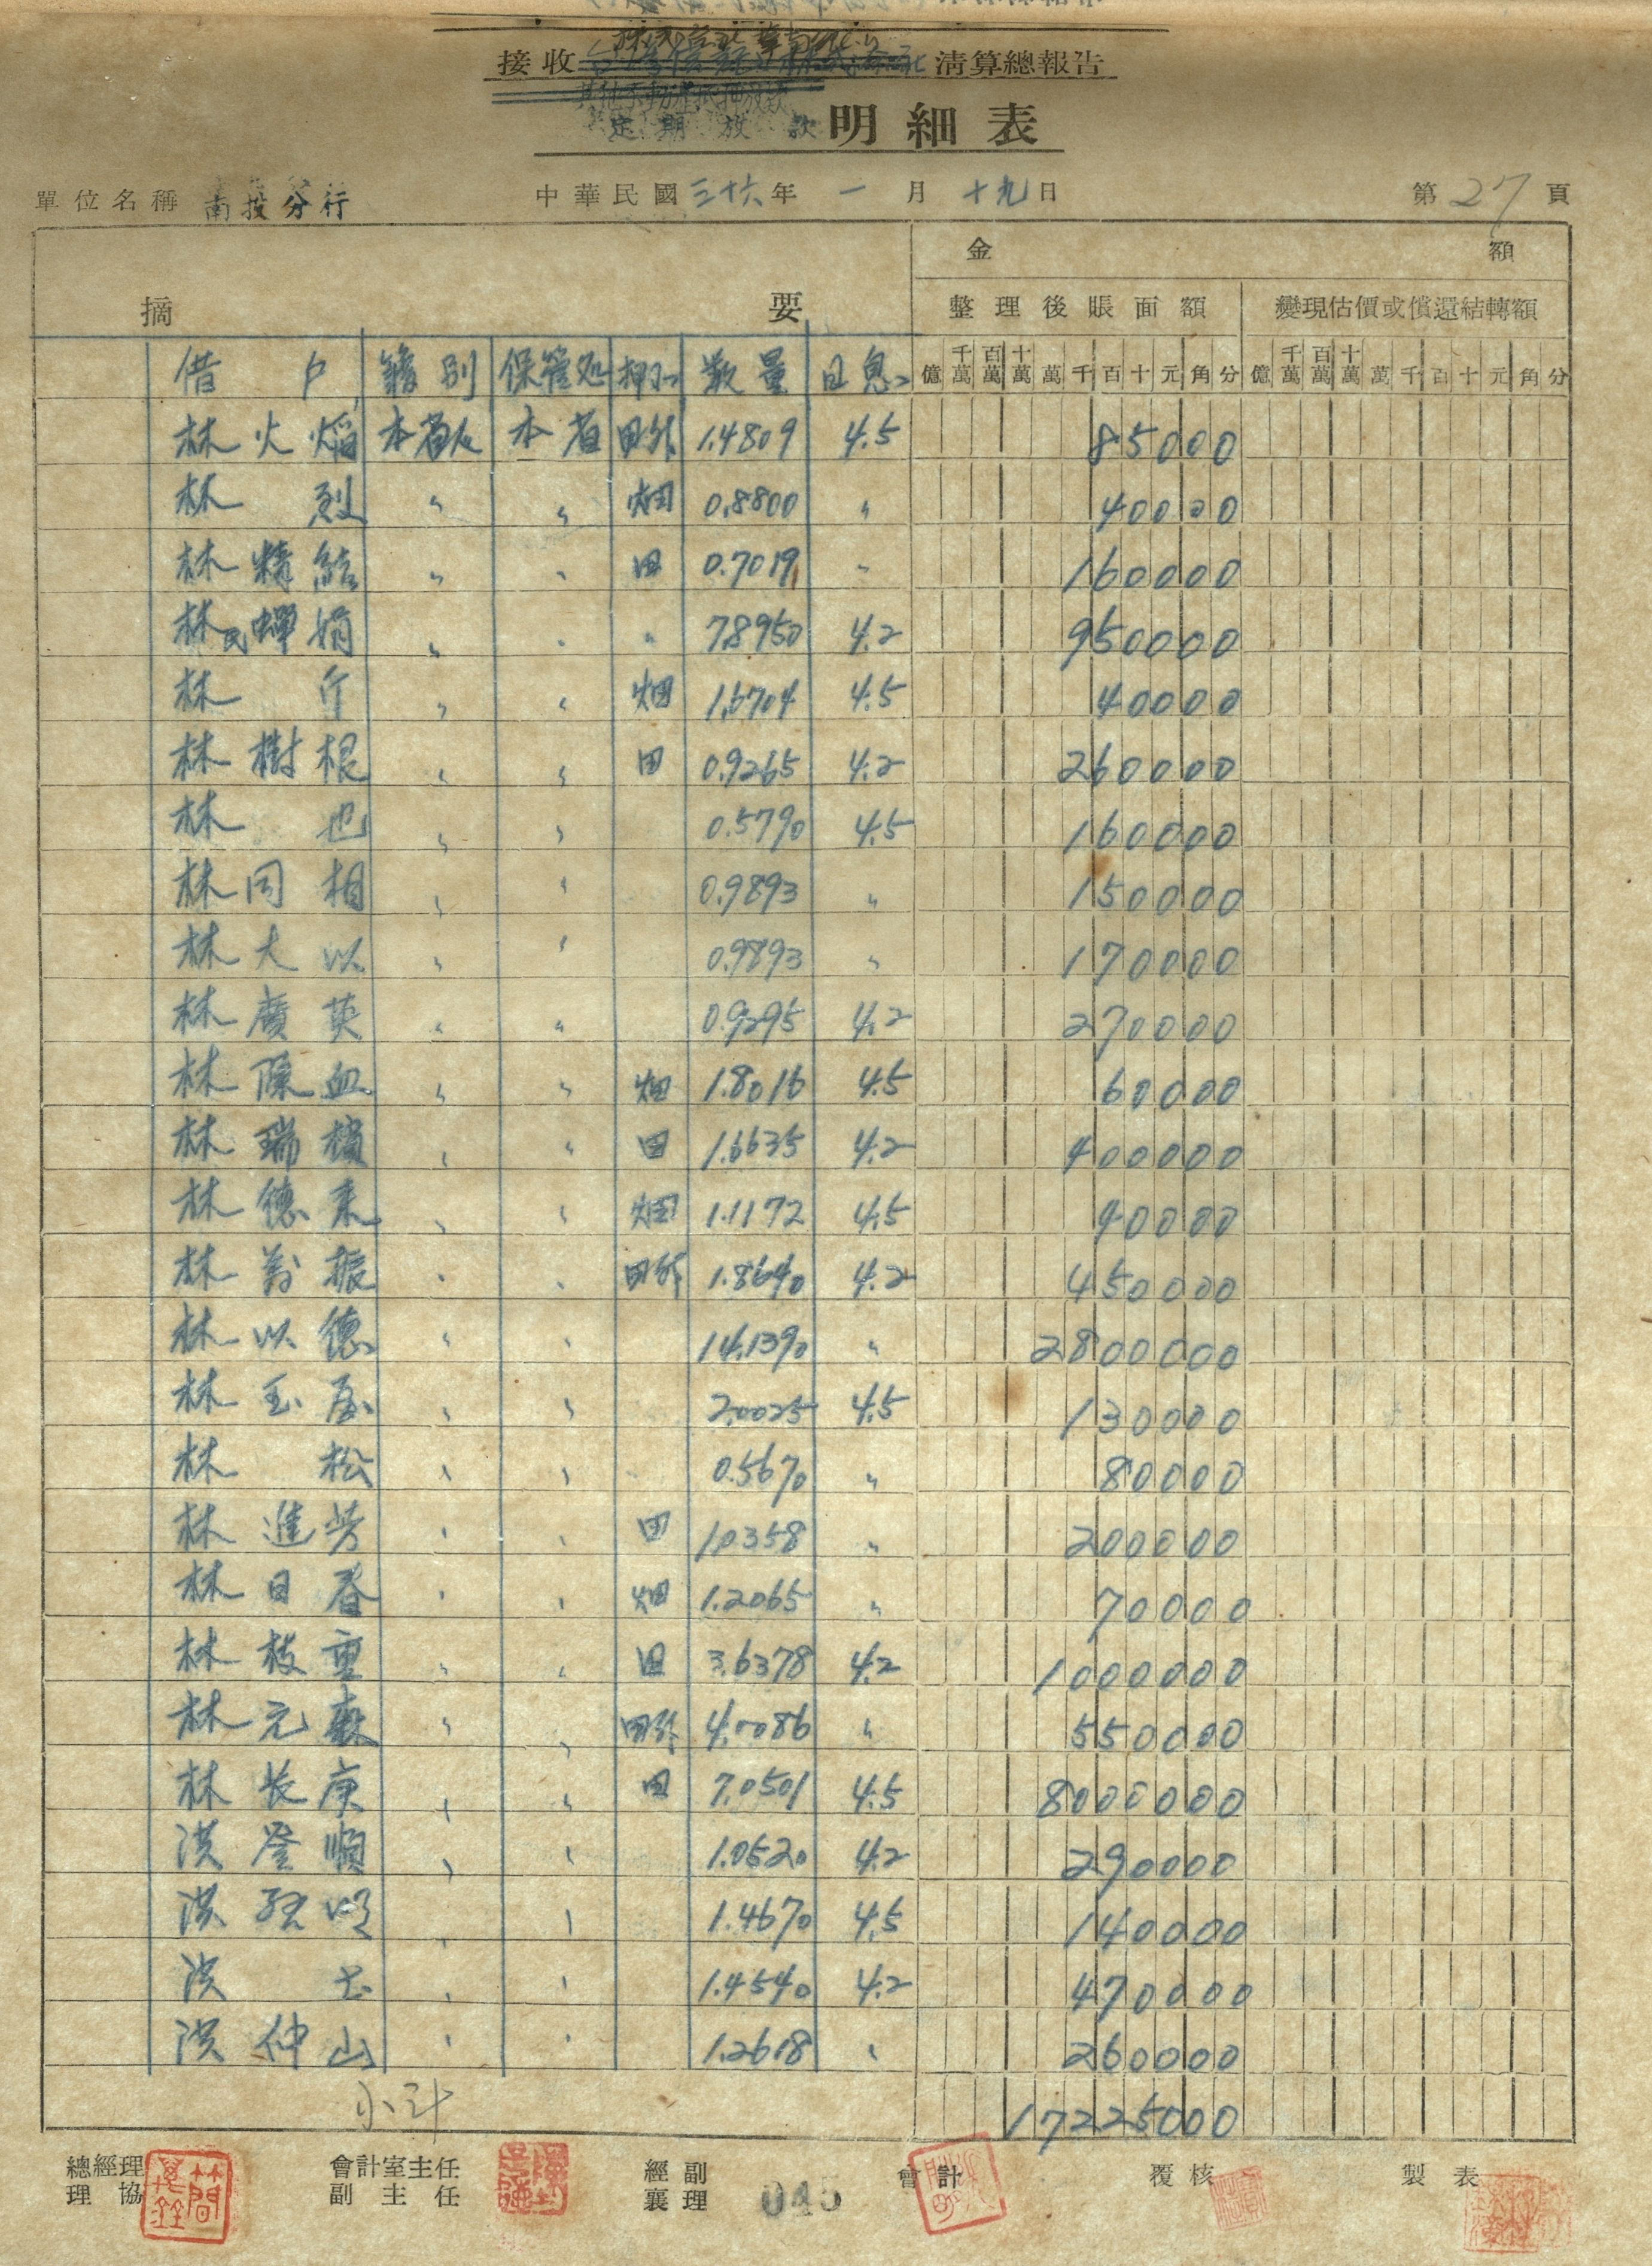 接收 清算總報告
定期放款明細表
單位名稱 南投分行 中華民國三十六年一月十九日 第27頁
金額
摘要 整理後賬面額 變現估價或償還結轉額
借户 籍別 保管処 押物 数量 日息
億 千萬 百萬 十萬 萬 千 百 十 元 角 分 億 千萬 百萬 十萬 萬 千 百 十 元 角 分
林火焰 本省人 本省 田外 1.4809 4.5 85000
林烈 〃 〃 畑 0.8800 〃 40000
林精 〃 〃 田 0.7019 〃 160000
林氏蟬娟 〃 〃 〃 7.8950 4.2 950000
林 〃 〃 畑 1.6704 4.5 40000
林樹根 〃 〃 田 0.9265 4.2 260000
林也 〃 〃 0.5790 4.5 160000
林同相 〃 〃 0.9893 〃 150000
林大以 〃 〃 0.9893 〃 170000
林廣英 〃 〃 0.9295 4.2 270000
林陳血 〃 〃 畑 1.8016 4.5 60000
林瑞 〃 〃 田 1.6635 4.2 400000
林德來 〃 〃 畑 1.1172 4.5 40000
林萬振 〃 〃 田外 1.8640 4.2 450000
林以德 〃 〃 14.1390 〃 2800000
林玉 〃 〃 2.0025 4.5 130000
林松 〃 〃 0.5670 〃 80000
林進芳 〃 〃 田 1.0358 〃 200000
林日春 〃 〃 畑 1.2065 〃 70000
林枝重 〃 〃 田 3.6378 4.2 1000000
林元 〃 〃 田外 4.0086 〃 550000
林長庚 〃 〃 田 7.0501 4.5 8000000
洪登順 〃 〃 1.0520 4.2 290000
洪 〃 〃 1.4670 4.5 140000
洪 〃 〃 1.4540 4.2 470000
洪仲山 〃 〃 1.2618 〃 260000
小計 17225000
總經理 會計室主任 經副 會計 覆核 製表
理協 副主任 襄理 045